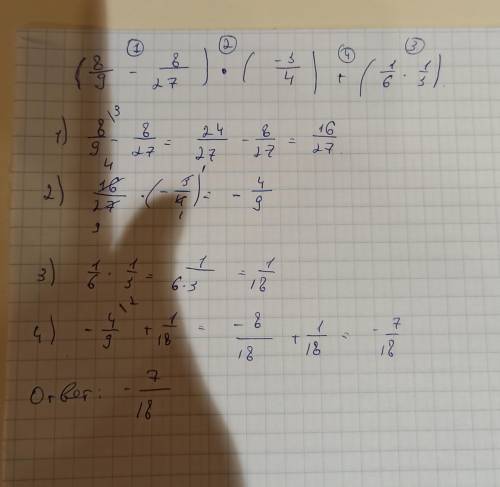 ① ② ④ ③
(8/9 - 8/27) • (-3/4) + (1/6 · 1/3)
1) 8\3/9 - 8/27 = 24/27 - 8/27 = 16/27
2) 16/27 · (-3/4) = -4/9
4 9 1 1
3) 1/6 · 1/3 = 1/6·3 = 1/18
4) -4\2/9 + 1/18 = -8/18 + 1/18 = -7/18
Ответ: -7/18